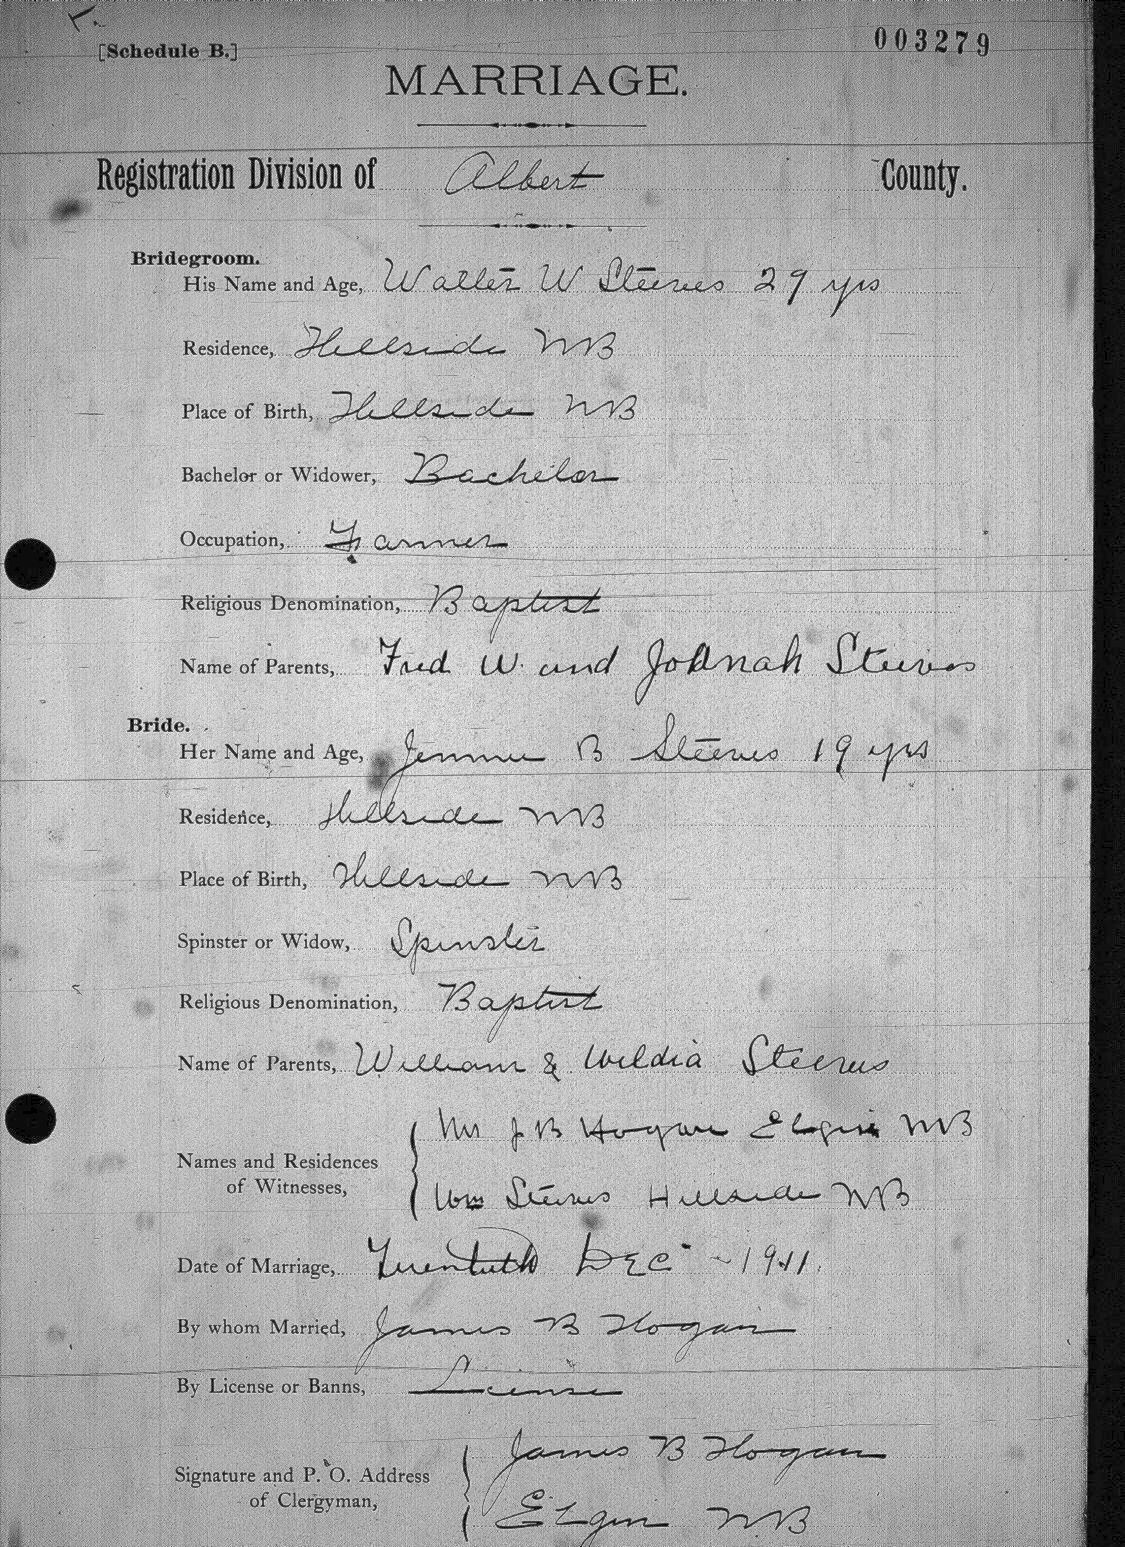 [Schedule B.]
003279
MARRIAGE.
Registration Division of Albert County.
Bridegroom.
His Name and Age, Walter W Steeves 29 yrs
Residence, Hillside NB
Place of Birth, Hillside NB
Bachelor or Widower, Bachelor
Occupation, Farmer
Religious Denomination, Baptist
Name of Parents, Fred W. and Johnah Steeves
Bride.
Her Name and Age, Jennie B Steeves 19 yrs
Residence, Hillside NB
Place of Birth, Hillside NB
Spinster or Widow, Spinster
Religious Denomination, Baptist
Name of Parents, William & Wildia Steeves
Names and Residences of Witnesses,
Mrs J B Hogan Elgin NB
Wm Steeves Hillside NB
Date of Marriage, Twentieth Dec - 1911.
By whom Married, James B Hogan
By License or Banns, License
Signature and P. O. Address of Clergyman,
James B Hogan
Elgin NB